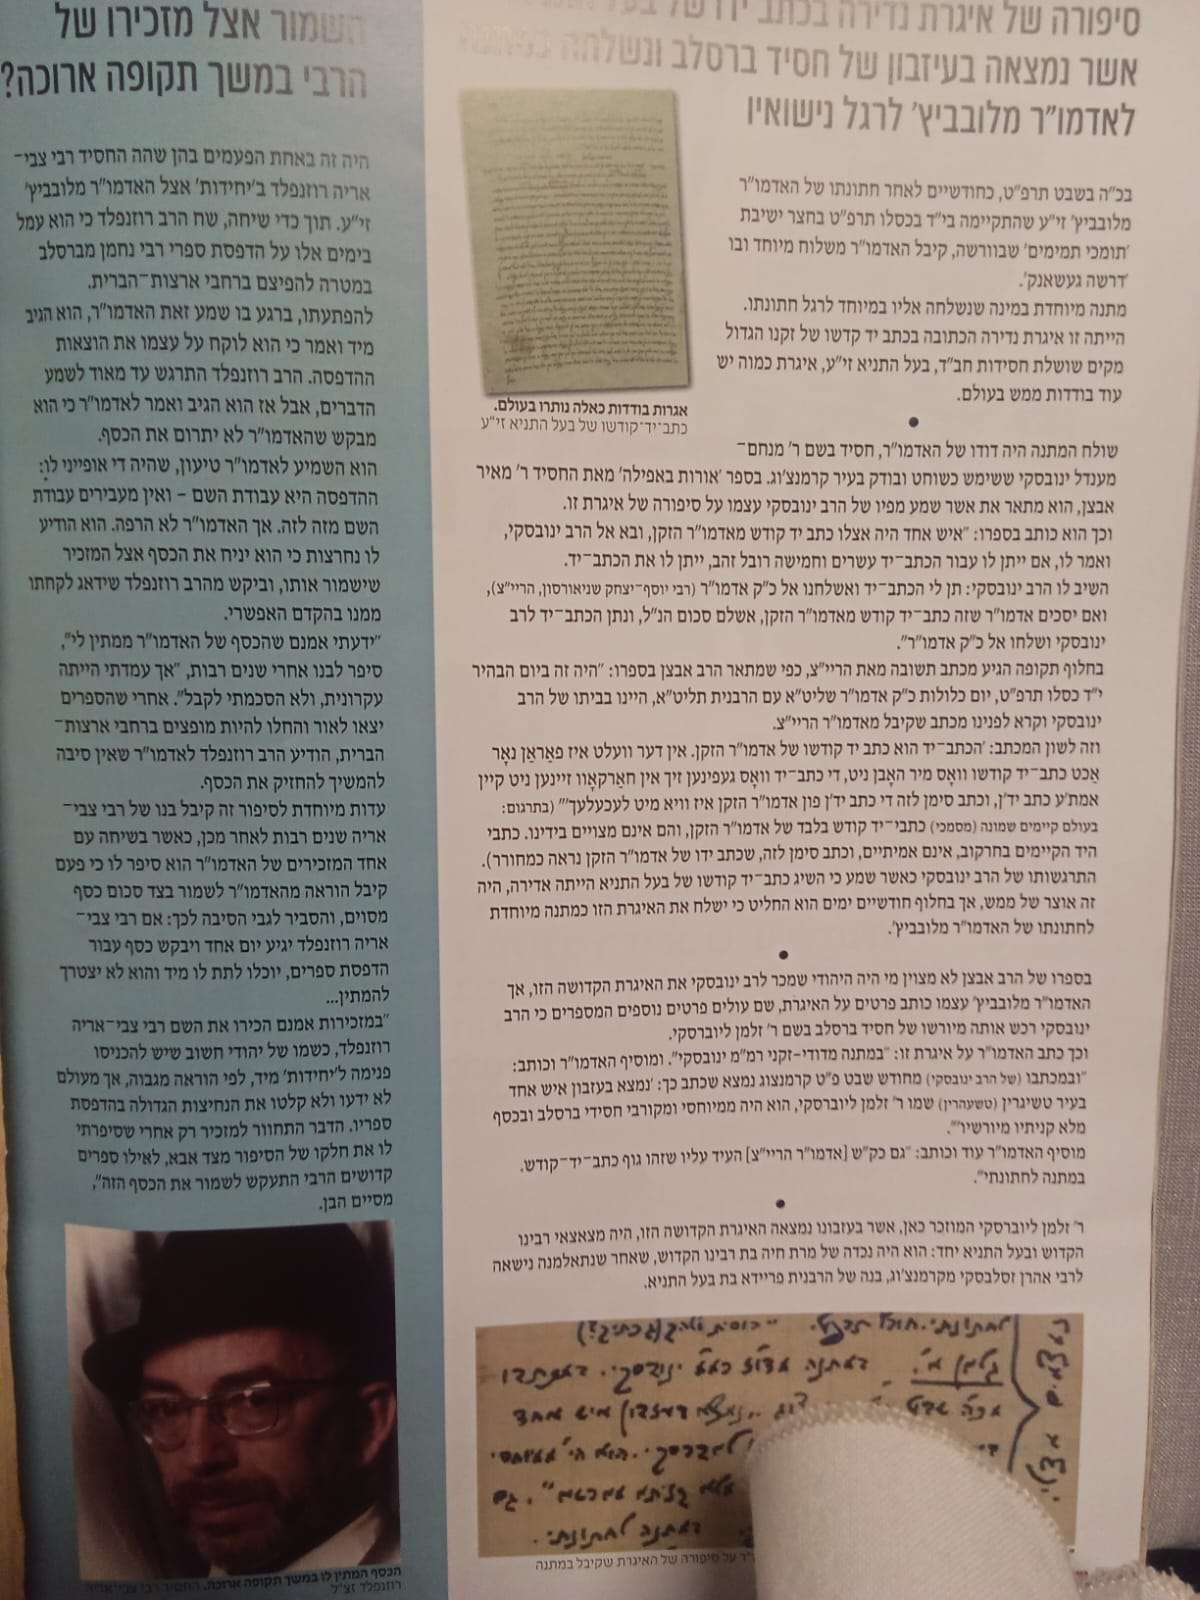 סיפורה של איגרת נדירה בכתב יד של בעל
אשר נמצאה בעיזבון של חסיד ברסלב ונשלחה כמתנה
לאדמו"ר מלובביץ' לרגל נישואיו
בכ"ה בשבט תרפ"ט, כחודשיים לאחר חתונתו של האדמו"ר
מלובביץ' זי"ע שהתקיימה בי"ד בכסלו תרפ"ט בחצר ישיבת
'תומכי תמימים' שבוורשה, קיבל האדמו"ר משלוח מיוחד ובו
'דרשה געשאנק'.
מתנה מיוחדת במינה שנשלחה אליו במיוחד לרגל חתונתו.
הייתה זו איגרת נדירה הכתובה בכתב יד קדשו של זקנו הגדול
מקים שושלת חסידות חב"ד, בעל התניא זי"ע, איגרת כמוה יש
עוד בודדות ממש בעולם.
אגרות בודדות כאלה נותרו בעולם.
כתב־יד־קודשו של בעל התניא זי"ע
•
שולח המתנה היה דודו של האדמו"ר, חסיד בשם ר' מנחם־
מענדל ינובסקי ששימש כשוחט ובודק בעיר קרמנצ'וג. בספר 'אורות באפילה' מאת החסיד ר' מאיר
אבצן, הוא מתאר את אשר שמע מפיו של הרב ינובסקי עצמו על סיפורה של איגרת זו.
וכך הוא כותב בספרו: "איש אחד היה אצלו כתב יד קודש מאדמו"ר הזקן, ובא אל הרב ינובסקי,
ואמר לו, אם ייתן לו עבור הכתב־יד עשרים וחמישה רובל זהב, ייתן לו את הכתב־יד.
השיב לו הרב ינובסקי: תן לי הכתב־יד ואשלחנו אל כ"ק אדמו"ר (רבי יוסף־יצחק שניאורסון, הריי"צ),
ואם יסכים אדמו"ר שזה כתב־יד קודש מאדמו"ר הזקן, אשלם סכום הנ"ל, ונתן הכתב־יד לרב
ינובסקי ושלחו אל כ"ק אדמו"ר".
בחלוף תקופה הגיע מכתב תשובה מאת הריי"צ, כפי שמתאר הרב אבצן בספרו: "היה זה ביום הבהיר
י"ד כסלו תרפ"ט, יום כלולות כ"ק אדמו"ר שליט"א עם הרבנית תליט"א, היינו בביתו של הרב
ינובסקי וקרא לפנינו מכתב שקיבל מאדמו"ר הריי"צ.
וזה לשון המכתב: 'הכתב־יד הוא כתב יד קודשו של אדמו"ר הזקן. אין דער וועלט איז פאַראַן נאָר
אַכט כתב־יד קודשו וואָס מיר האָבן ניט, די כתב־יד וואָס געפינען זיך אין חאַרקאָוו זיינען ניט קיין
אמת'ע כתב יד'ן, וכתב סימן לזה די כתב יד'ן פון אדמו"ר הזקן איז וויא מיט לעכעלעך'" (בתרגום:
בעולם קיימים שמונה (מסמכי) כתבי־יד קודש בלבד של אדמו"ר הזקן, והם אינם מצויים בידינו. כתבי
היד הקיימים בחרקוב, אינם אמיתיים, וכתב סימן לזה, שכתב ידו של אדמו"ר הזקן נראה כמחורר).
התרגשותו של הרב ינובסקי כאשר שמע כי השיג כתב־יד קודשו של בעל התניא הייתה אדירה, היה
זה אוצר של ממש, אך בחלוף חודשיים ימים הוא החליט כי ישלח את האיגרת הזו כמתנה מיוחדת
לחתונתו של האדמו"ר מלובביץ'.
•
בספרו של הרב אבצן לא מצוין מי היה היהודי שמכר לרב ינובסקי את האיגרת הקדושה הזו, אך
האדמו"ר מלובביץ' עצמו כותב פרטים על האיגרת, שם עולים פרטים נוספים המספרים כי הרב
ינובסקי רכש אותה מיורשו של חסיד ברסלב בשם ר' זלמן ליוברסקי.
וכך כתב האדמו"ר על איגרת זו: "במתנה מדודי־זקני רמ"מ ינובסקי". ומוסיף האדמו"ר וכותב:
"ובמכתבו (של הרב ינובסקי) מחודש שבט פ"ט קרמנצוג נמצא שכתב כך: 'נמצא בעזבון איש אחד
בעיר טשיגרין (טשעהרין) שמו ר' זלמן ליוברסקי, הוא היה ממיוחסי ומקורבי חסידי ברסלב ובכסף
מלא קניתיו מיורשיו'".
מוסיף האדמו"ר עוד וכותב: "גם כק"ש [אדמו"ר הריי"צ] העיד עליו שזהו גוף כתב־יד־קודש.
במתנה לחתונתי".
•
ר' זלמן ליוברסקי המוזכר כאן, אשר בעזבונו נמצאה האיגרת הקדושה הזו, היה מצאצאי רבינו
הקדוש ובעל התניא יחד: הוא היה נכדה של מרת חיה בת רבינו הקדוש, שאחר שנתאלמנה נישאה
לרבי אהרן זסלבסקי מקרמנצ'וג, בנה של הרבנית פריידא בת בעל התניא.
לחתונתי.
במתנה
ינובסקי.
שבט
איש אחד
במתנה לחתונתי.
על סיפורה של האיגרת שקיבל במתנה
השמור אצל מזכירו של
הרבי במשך תקופה ארוכה?
היה זה באחת הפעמים בהן שהה החסיד רבי צבי־
אריה רוזנפלד ב'יחידות' אצל האדמו"ר מלובביץ'
זי"ע. תוך כדי שיחה, שח הרב רוזנפלד כי הוא עמל
בימים אלו על הדפסת ספרי רבי נחמן מברסלב
במטרה להפיצם ברחבי ארצות־הברית.
להפתעתו, ברגע בו שמע זאת האדמו"ר, הוא הגיב
מיד ואמר כי הוא לוקח על עצמו את הוצאות
ההדפסה. הרב רוזנפלד התרגש עד מאוד לשמע
הדברים, אבל אז הוא הגיב ואמר לאדמו"ר כי הוא
מבקש שהאדמו"ר לא יתרום את הכסף.
הוא השמיע לאדמו"ר טיעון, שהיה די אופייני לו:
ההדפסה היא עבודת השם – ואין מעבירים עבודת
השם מזה לזה. אך האדמו"ר לא הרפה. הוא הודיע
לו נחרצות כי הוא יניח את הכסף אצל המזכיר
שישמור אותו, וביקש מהרב רוזנפלד שידאג לקחתו
ממנו בהקדם האפשרי.
"ידעתי אמנם שהכסף של האדמו"ר ממתין לי",
סיפר לבנו אחרי שנים רבות, "אך עמדתי הייתה
עקרונית, ולא הסכמתי לקבל". אחרי שהספרים
יצאו לאור והחלו להיות מופצים ברחבי ארצות־
הברית, הודיע הרב רוזנפלד לאדמו"ר שאין סיבה
להמשיך להחזיק את הכסף.
עדות מיוחדת לסיפור זה קיבל בנו של רבי צבי־
אריה שנים רבות לאחר מכן, כאשר בשיחה עם
אחד המזכירים של האדמו"ר הוא סיפר לו כי פעם
קיבל הוראה מהאדמו"ר לשמור בצד סכום כסף
מסוים, והסביר לגבי הסיבה לכך: אם רבי צבי־
אריה רוזנפלד יגיע יום אחד ויבקש כסף עבור
הדפסת ספרים, יוכלו לתת לו מיד והוא לא יצטרך
להמתין...
"במזכירות אמנם הכירו את השם רבי צבי־אריה
רוזנפלד, כשמו של יהודי חשוב שיש להכניסו
פנימה ל'יחידות' מיד, לפי הוראה מגבוה, אך מעולם
לא ידעו ולא קלטו את הנחיצות הגדולה בהדפסת
ספריו. הדבר התחוור למזכיר רק אחרי שסיפרתי
לו את חלקו של הסיפור מצד אבא, לאילו ספרים
קדושים הרבי התעקש לשמור את הכסף הזה",
מסיים הבן.
הכסף המתין לו במשך תקופה ארוכה. החסיד רבי צבי־אריה
רוזנפלד זצ"ל